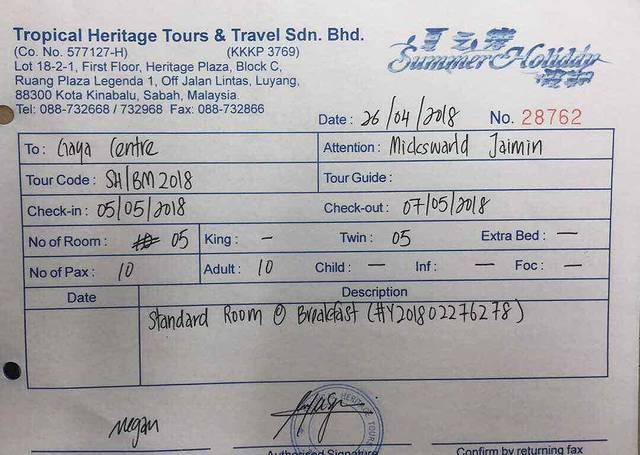 Tropical Heritage Tours & Travel Sdn. Bhd.
(Co. No. 577127-H) (KKKP 3769)
Lot 18-2-1, First Floor, Heritage Plaza, Block C,
Ruang Plaza Legenda 1, Off Jalan Lintas, Luyang,
88300 Kota Kinabalu, Sabah, Malaysia.
Tel: 088-732668 / 732968 Fax: 088-732866
Summer Holiday
Date : 26/04/2018 No. 28762
To : Gaya Centre Attention : Mickswarld Jaimin
Tour Code : SH/BM2018 Tour Guide :
Check-in : 05/05/2018 Check-out : 07/05/2018
No of Room : 05 King : – Twin : 05 Extra Bed : –
No of Pax : 10 Adult : 10 Child : – Inf : – Foc : –
Date Description
Standard Room @ Breakfast (#Y201802276278)
Megan
HERITAGE TOURS
Authorised Signature Confirm by returning fax